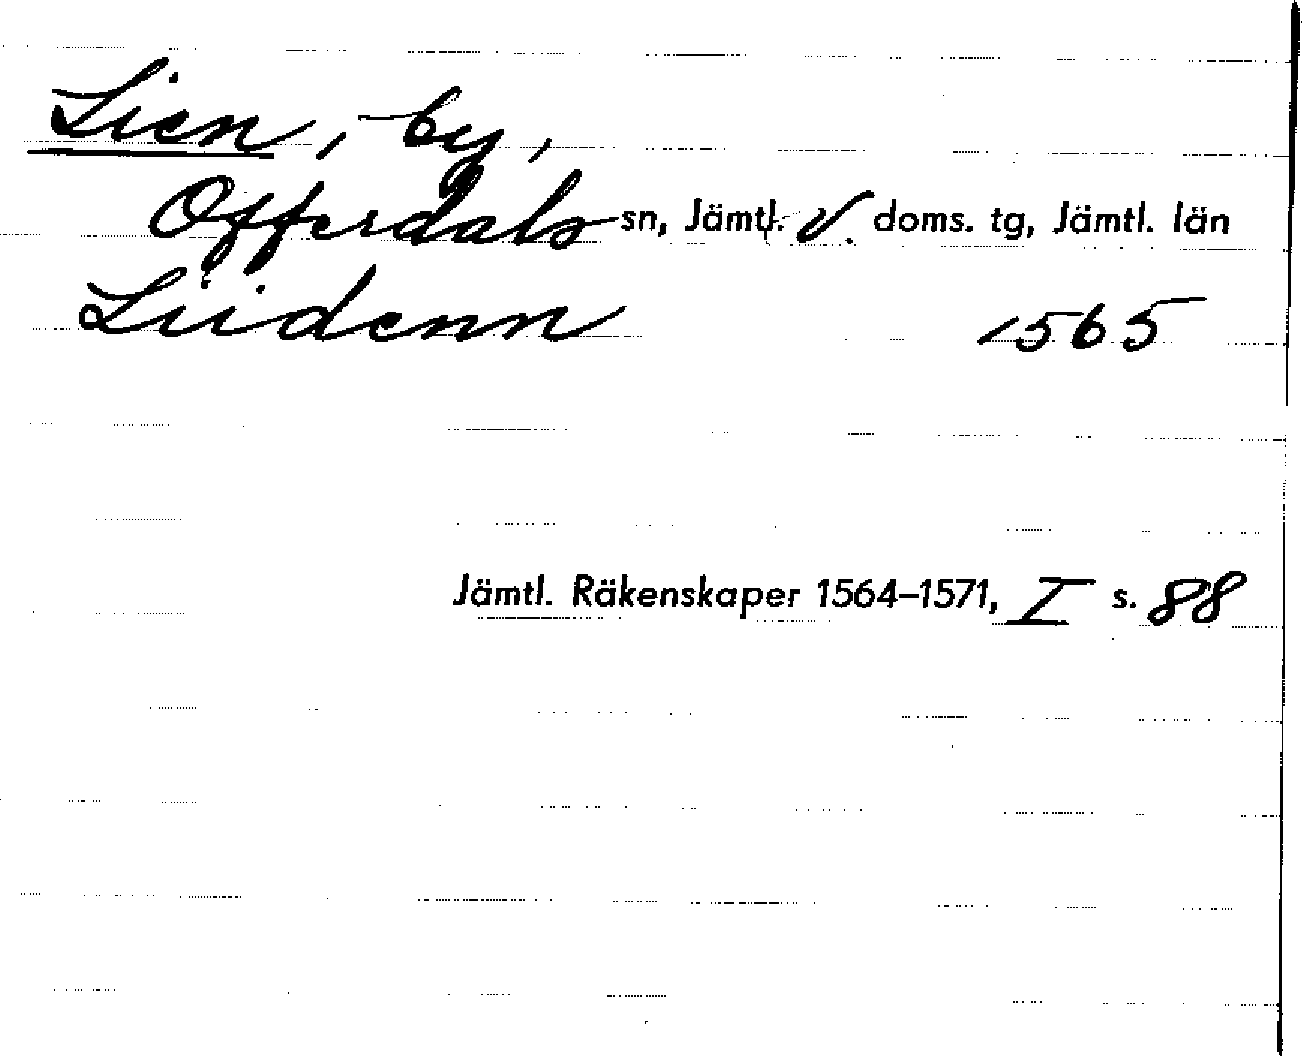 Lien, by,
Offerdals sn, Jämtl. v. doms. tg, Jämtl. län
Liidenn 1565
Jämtl. Räkenskaper 1564–1571, I s. 88